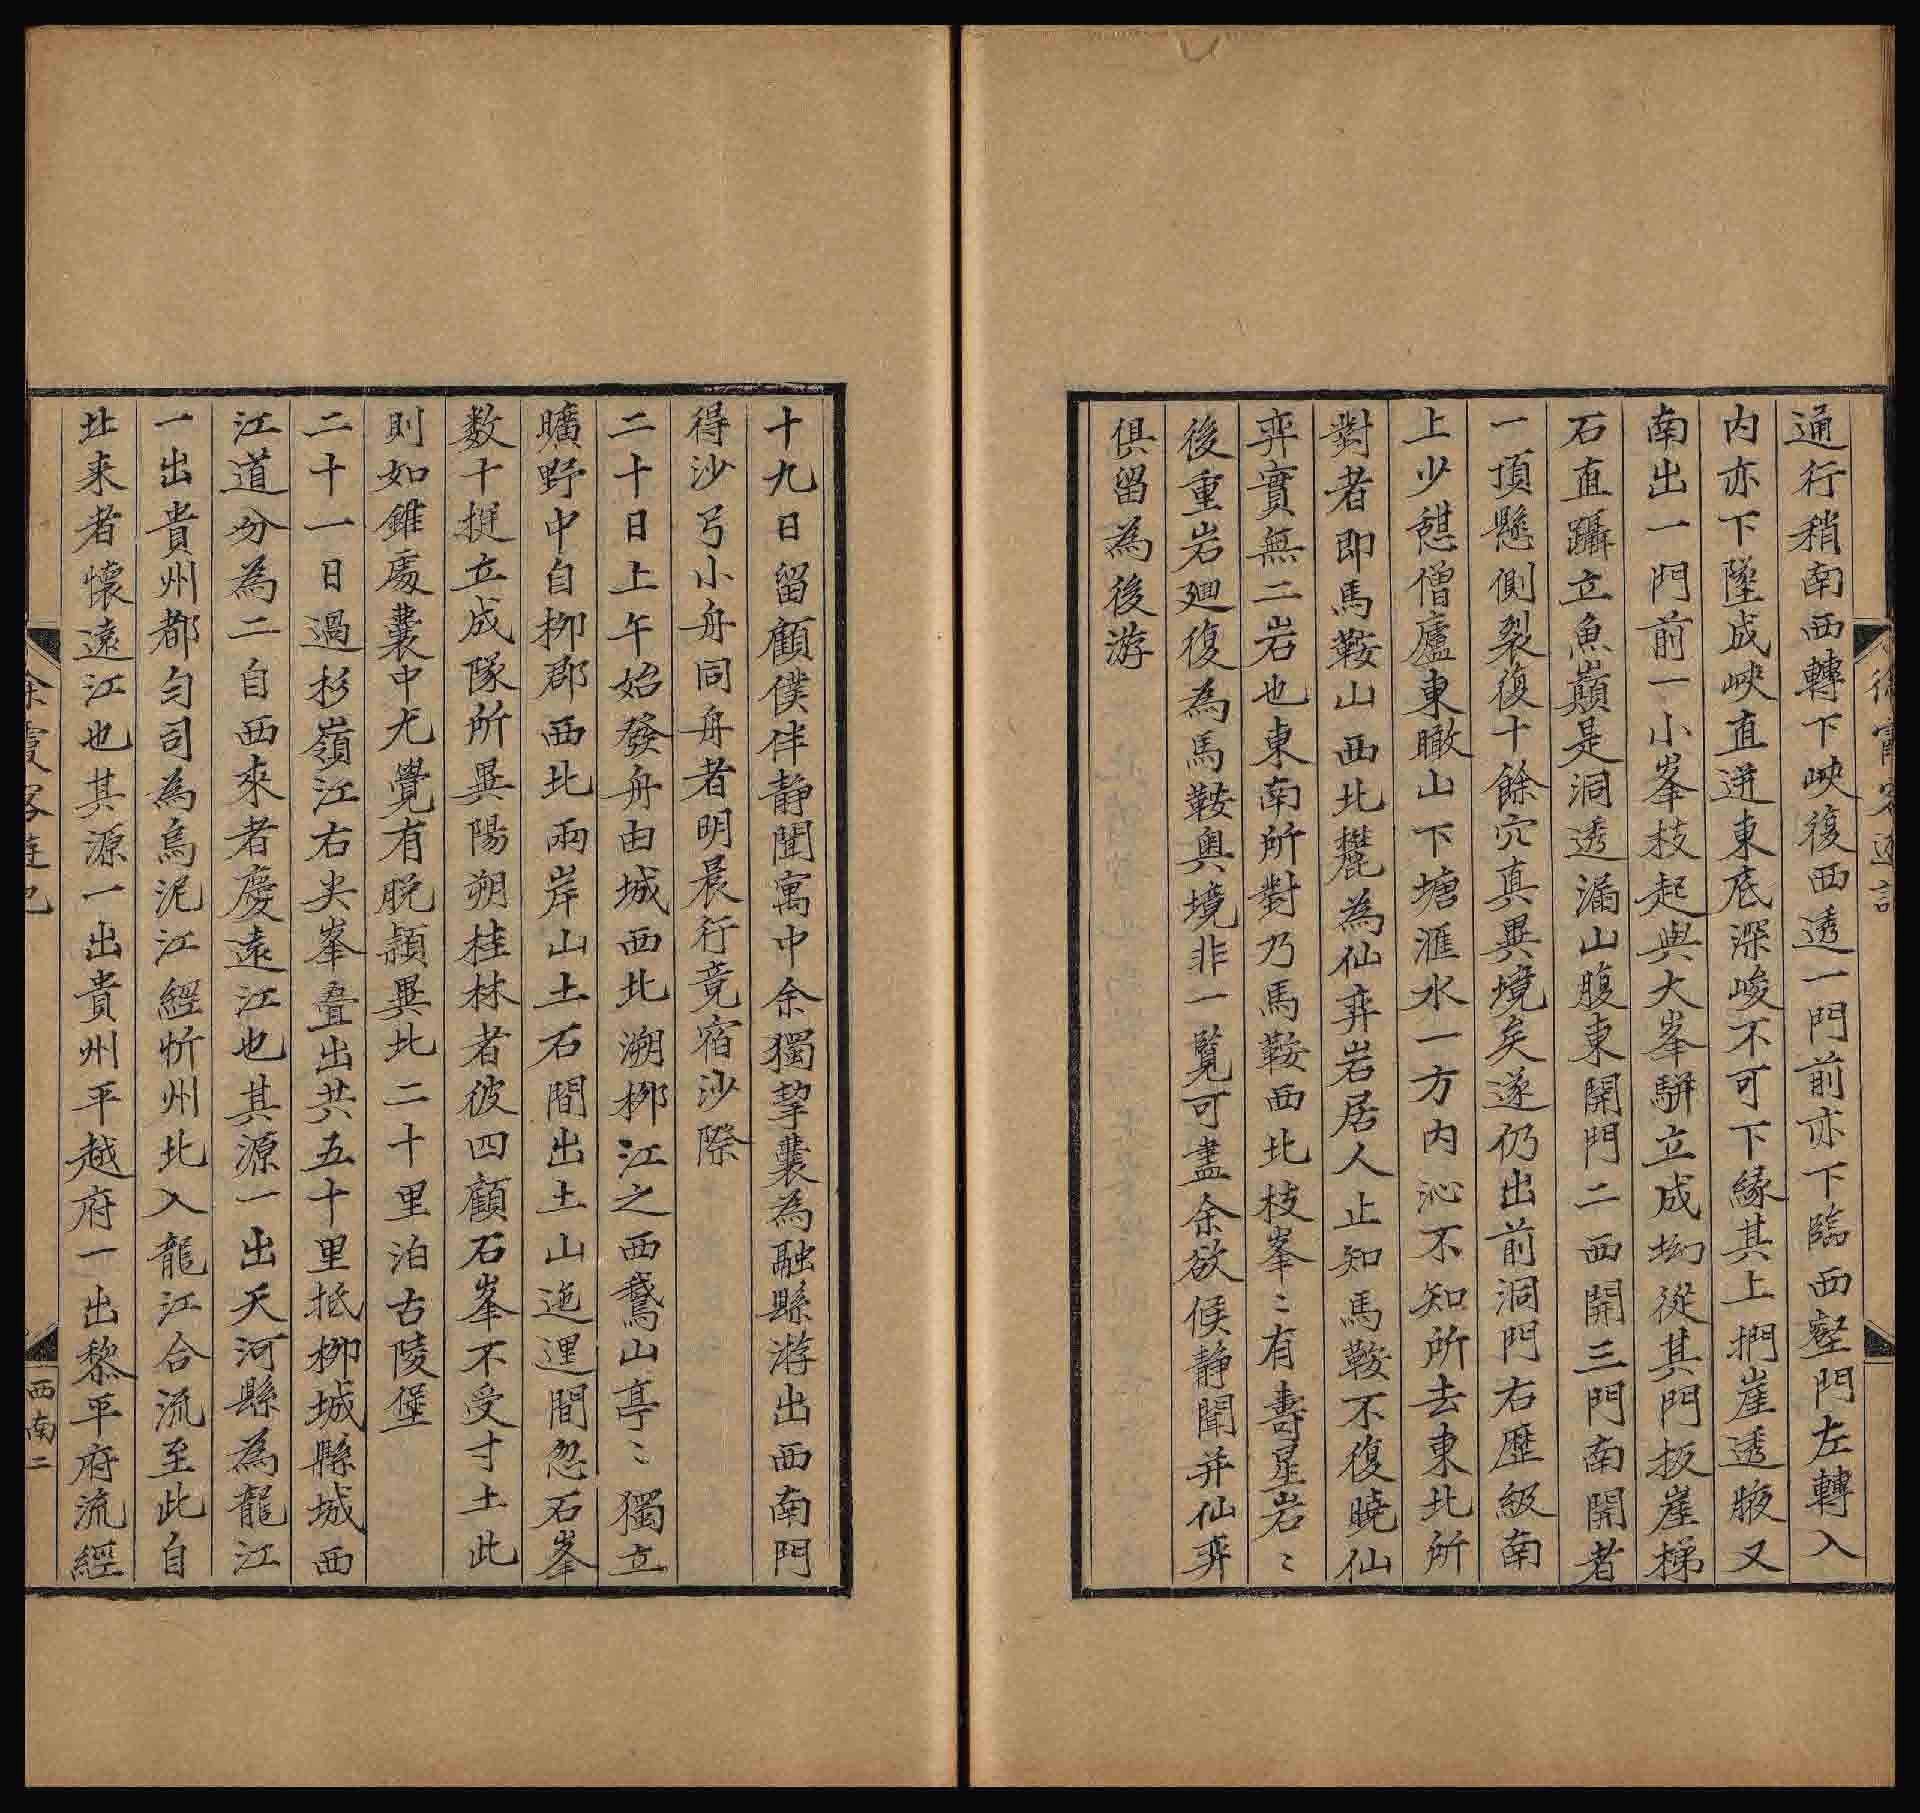 通行稍南西轉下峽復西透一門前亦下臨西壑門左轉入
内亦下墜成峽直迸東底深峻不可下緣其上捫崖透腋又
南出一門門前一小峯枝起與大峯駢立成坳從其門扳崖梯
石直躡立魚巔是洞透漏山腹東開門二西開三門南開者
一頂懸側裂復十餘穴真異境矣遂仍出前洞門右歷級南
上少憩僧廬東瞰山下塘滙水一方内沁不知所去東北所
對者即馬鞍山西北麓為仙弈岩居人止知馬鞍不復曉仙
弈實無二岩也東南所對乃馬鞍西北枝峯〻有壽星岩〻
後重岩廻復為馬鞍奧境非一覧可盡余欲候静聞并仙弈
俱留為後游
十九日留顧僕伴静聞寓中余獨挈囊為融縣游出西南門
得沙弓小舟同舟者明晨行竟宿沙際
二十日上午始發舟由城西北溯柳江之西鵞山亭〻獨立
曠野中自柳郡西北兩岸山土石間出土山迤逦間忽石峯
数十挺立成隊所異陽朔桂林者彼四顧石峯不受寸土此
則如錐處囊中尤覺有脱穎異北二十里泊古陵堡
二十一日過杉嶺江右尖峯疊出共五十里抵柳城縣城西
江道分為二自西來者慶遠江也其源一出天河縣為龍江
一出貴州都匀司為烏泥江經忻州北入龍江合流至此自
北来者懷遠江也其源一出貴州平越府一出黎平府流經
徐霞客遊記
西南二